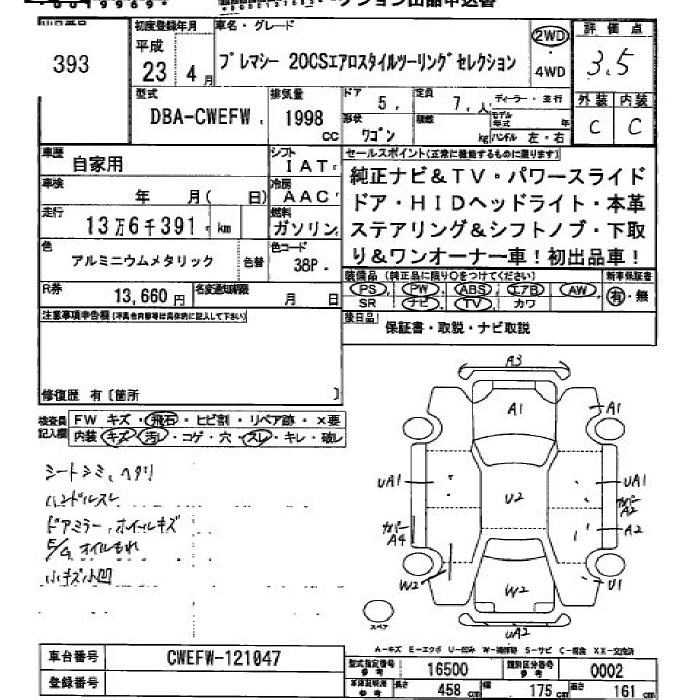 393
初度登録年月
平成
23年
4月
車名・グレード
プレマシー 20CSエアロスタイルツーリングセレクション
2WD
4WD
評価点
3.5
外装 内装
C C
型式
DBA-CWEFW
排気量
1998
CC
ドア
5
定員
7 人
ディーラー・並行
形状
ワゴン
積載
kg
モデル年式
年
ハンドル 左・右
車歴
自家用
シフト
IAT
車検
年 月( 日)
冷房
AAC
走行
13万6千391 km
燃料
ガソリン
色
アルミニウムメタリック
色替
色コード
38P
R券
13,660円
名変通知期限
月 日
セールスポイント(正常に機能するものに限ります)
純正ナビ&TV・パワースライド
ドア・HIDヘッドライト・本革
ステアリング&シフトノブ・下取
り&ワンオーナー車!初出品車!
装備品 (純正品に限り○をつけてください)
新車保証書
PS PW ABS エアB AW
SR ナビ TV カワ
有・無
後日品
保証書・取説・ナビ取説
注意事項申告欄(不具合内容等は具体的に記入して下さい)
修復歴 有〔箇所 〕
検査員
記入欄
FW キズ・飛石・ヒビ割・リペア跡・×要
内装 キズ・汚レ・コゲ・穴・スレ・キレ・破レ
シートシミ、ヘタリ
ハンドルスレ
ドアミラー、ホイールキズ
E/G オイルもれ
小キズ小凹
A3
A1
A1
UA1
U2
UA1
カバー
A2
A2
カバー
A4
W2
W2
U1
UA2
スペア
A-キズ E-エクボ U-凹み W-補修跡 S-サビ C-腐食 XX-交換済
車台番号
CWEFW-121047
登録番号
型式指定番号
参考
16500
類別区分番号
参考
0002
車体証明用
参考
長さ
458 cm
幅
175 cm
高さ
161 cm